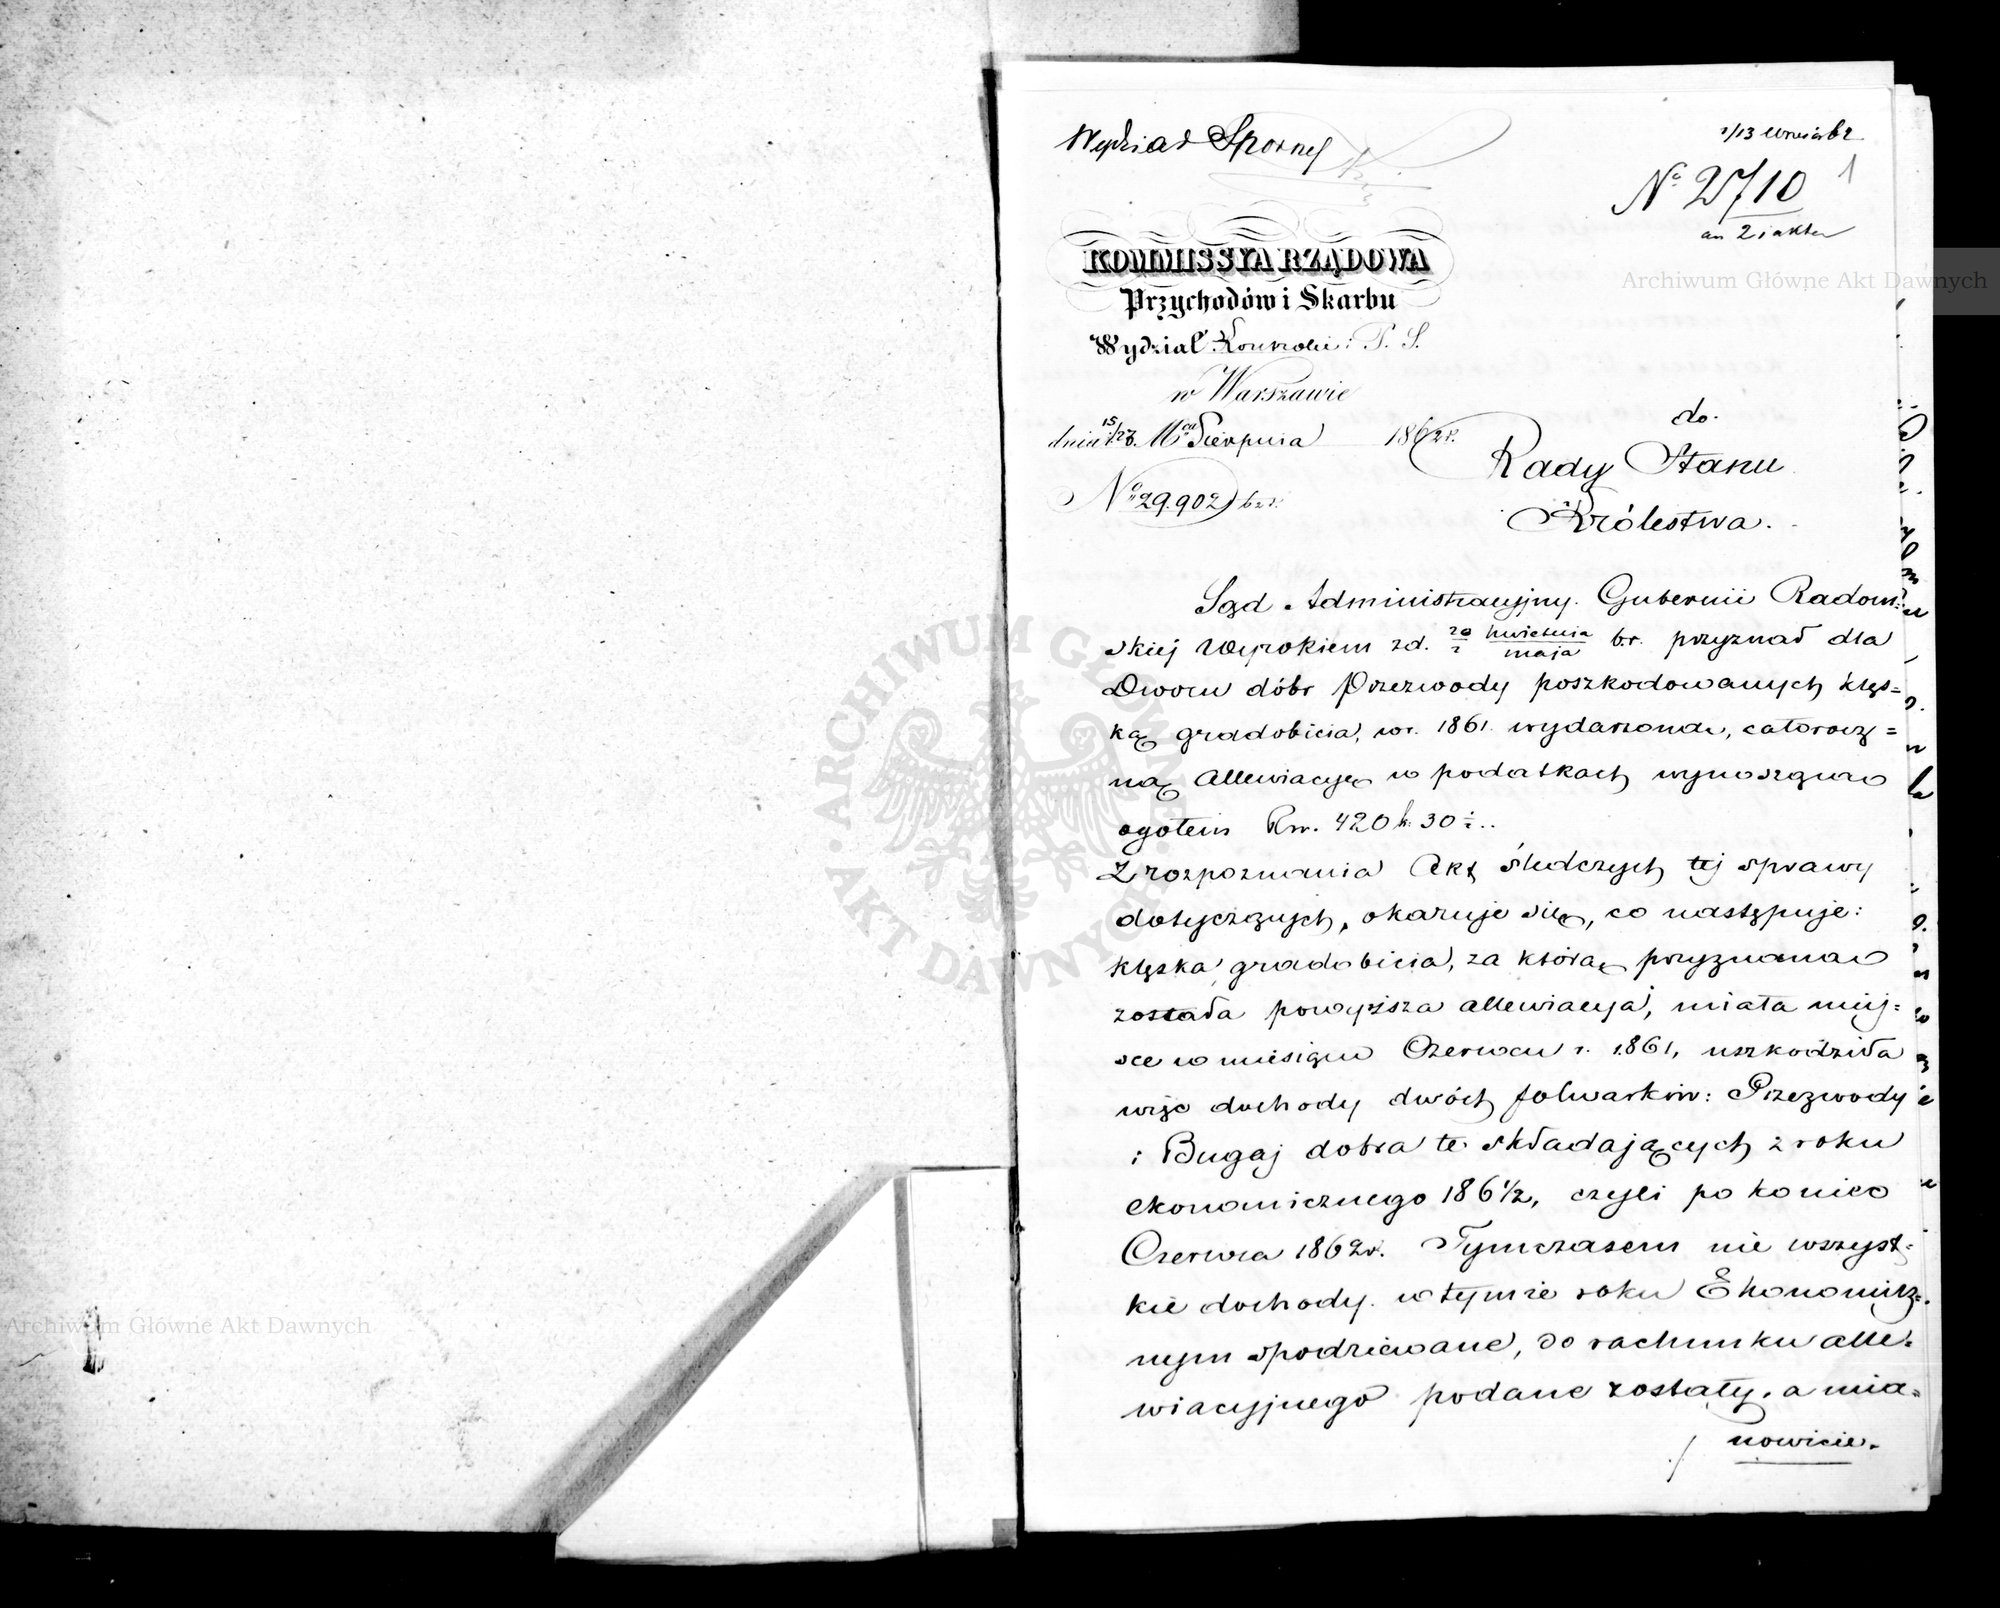 Wydział Sporny
1/13 Wrześ 62
N° 2710
1
an 2 i akta
KOMMISSYA RZĄDOWA
Przychodów i Skarbu
Wydział Kontroli P. S.
w Warszawie
dnia 15/27 Mca Sierpnia 1862r.
N° 29.902
do
Rady Stanu
Królestwa.
Sąd Administracyjny Gubernii Radom=
skiej Wyrokiem zd. 20 kwietnia / 2 maja b.r. przyznał dla
Dworu dóbr Przezwody poszkodowanych klęs=
ką gradobicia, w r. 1861 wydarzoną, całorocz=
ną allewiacyę w podatkach wynoszącą
ogółem Rsr. 420 k. 30
Z rozpoznania Akt śledczych tej sprawy
dotyczących, okazuje się, co następuje:
klęska gradobicia, za którą przyznaną
została powyższa allewiacyja, miała miej=
sce w miesiącu Czerwcu r. 1861, uszkodziła
więc dochody dwóch folwarków: Przezwody
i Bugaj dobra te składających z roku
ekonomicznego 186 1/2, czyli po koniec
Czerwca 1862r. Tymczasem nie wszyst=
kie dochody w tymże roku Ekonomicz=
nym spodziewane, do rachunku alle=
wiacyjnego podane zostały, a mia=
nowicie.
Archiwum Główne Akt Dawnych
Archiwum Główne Akt Dawnych
ARCHIWUM GŁÓWNE AKT DAWNYCH